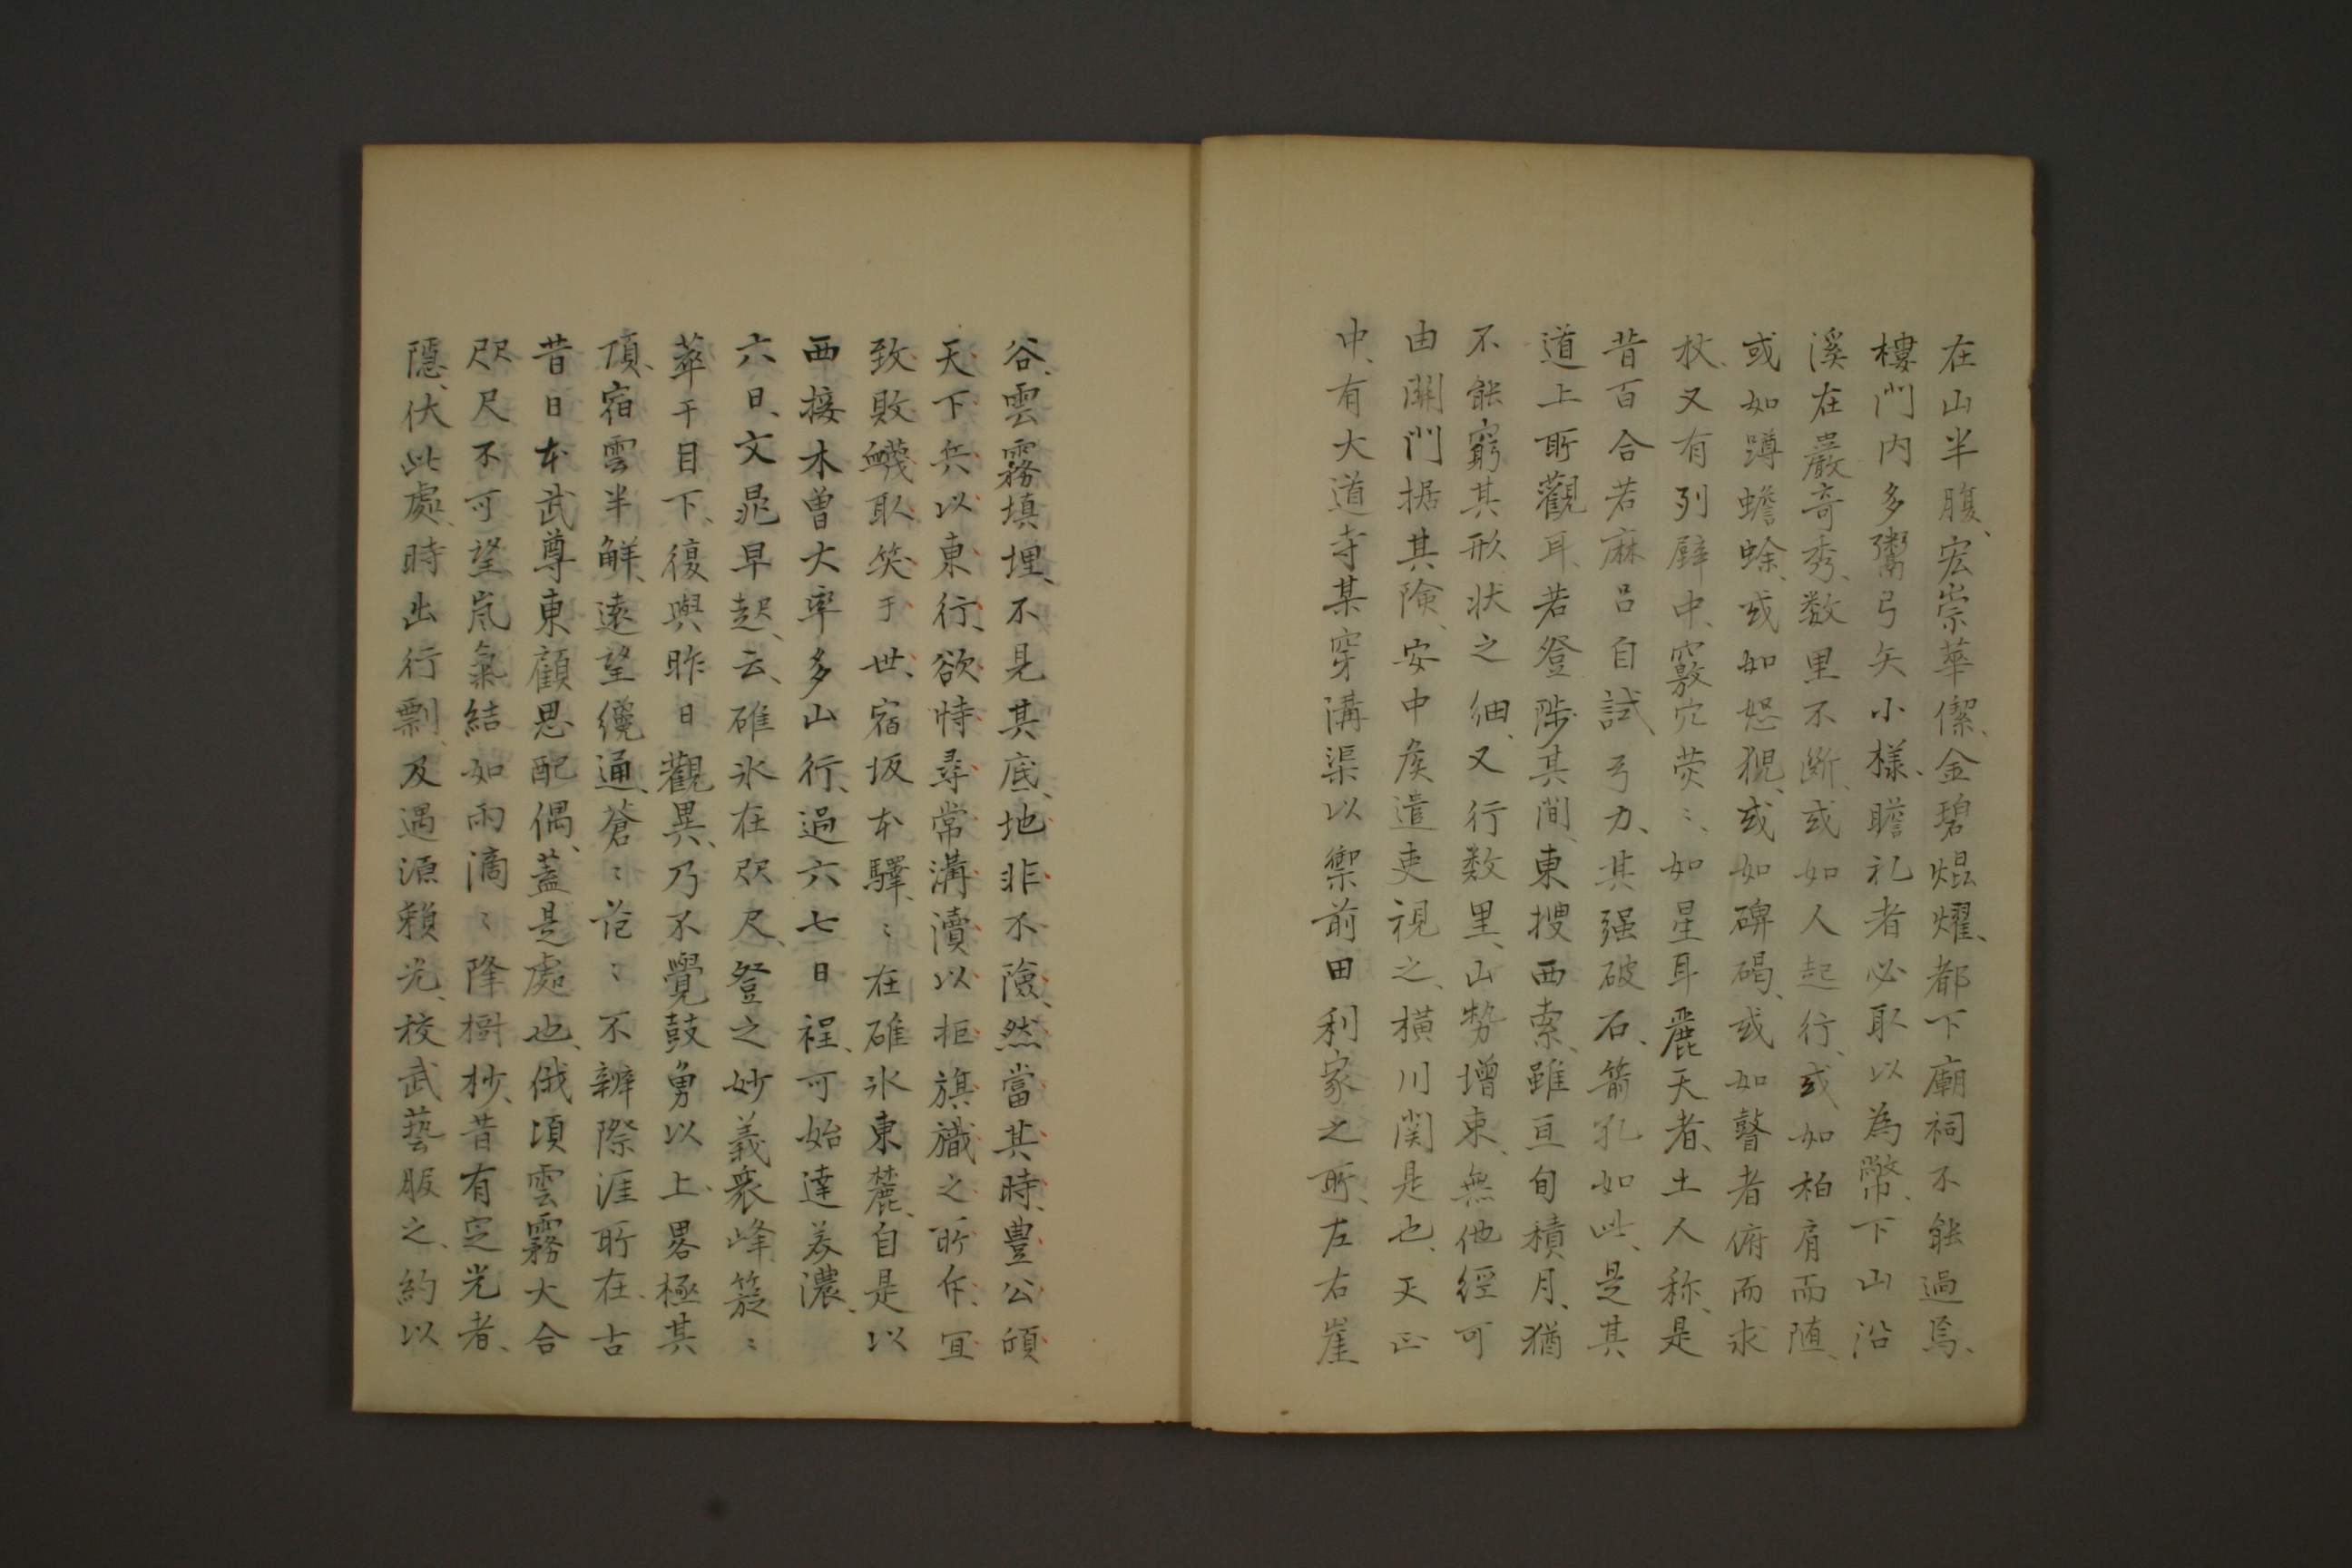 在山半腹、宏崇華傑、金碧焜燿、都下廟祠不能過焉、
樓門内多鬻弓矢小様、瞻礼者必取以為幣、下山沿
溪在巖奇秀、数里不断、或如人起行、或如柏肩而随、
或如蹲蟾蜍、或如怒猊、或如碑碣、或如瞽者俯而求
杖、又有列壁中、竅穴荧〻、如星耳麗天者、土人称、是
昔百合若麻呂自試弓力、其强破石、箭孔如此、是其
道上所觀耳、若登陟其間、東捜西索、雖亘旬積月、猶
不能窮其形状之細、又行数里、山勢增束、無他經可
由、関門据其険、安中矦遣吏視之、横川関是也、天正
中、有大道寺某穿溝渠以禦前田利家之所、左右崖
谷、雲霧填埋、不見其底、地非不險、然當其時、豊公傾
天下兵以東行、欲恃尋常溝瀆以拒旗幟之所斥、宜
致敗衊取笑于世、宿坂本驛〻在碓氷東麓、自是以
西接木曽大率多山行、過六七日程、可始達美濃、
六日、文晁早起、云、碓氷在咫尺、登之妙義衆峰簇〻
萃于目下、復與昨日觀異、乃不覺鼓勇以上、畧極其
頂、宿雲半解、遠望纔通、蒼〻茫〻不辨際涯所在、古
昔日本武尊東顧思配偶、蓋是處也、俄頃雲霧大合
咫尺不可望嵐氣結如雨滴〻降樹杪、昔有定光者、
隱伏此處、時出行剽、及遇源頼光、校武藝服之、約以